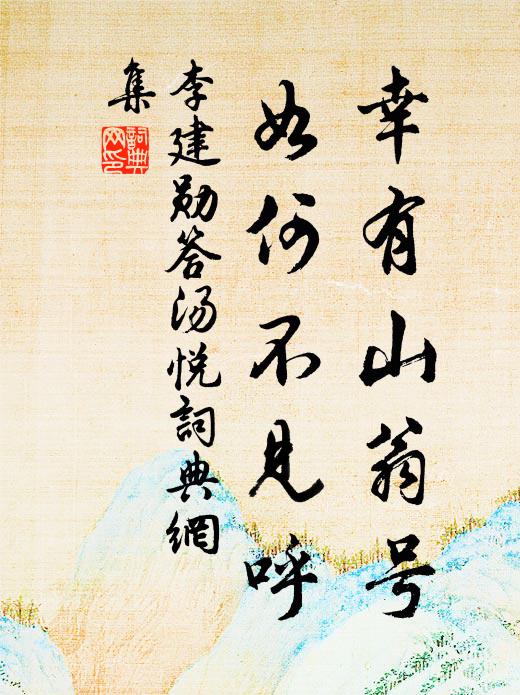 幸有山翁号
如何不见呼
李建勋答汤悦詞典網
集
詞典網印